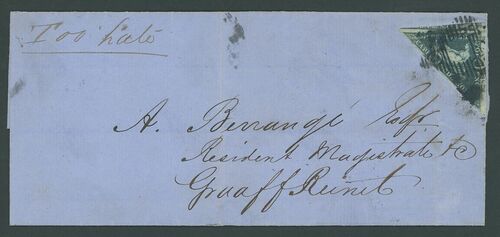 Too Late
A. Berrangé Esqr
Resident Magistrate &c
Graaff Reinet